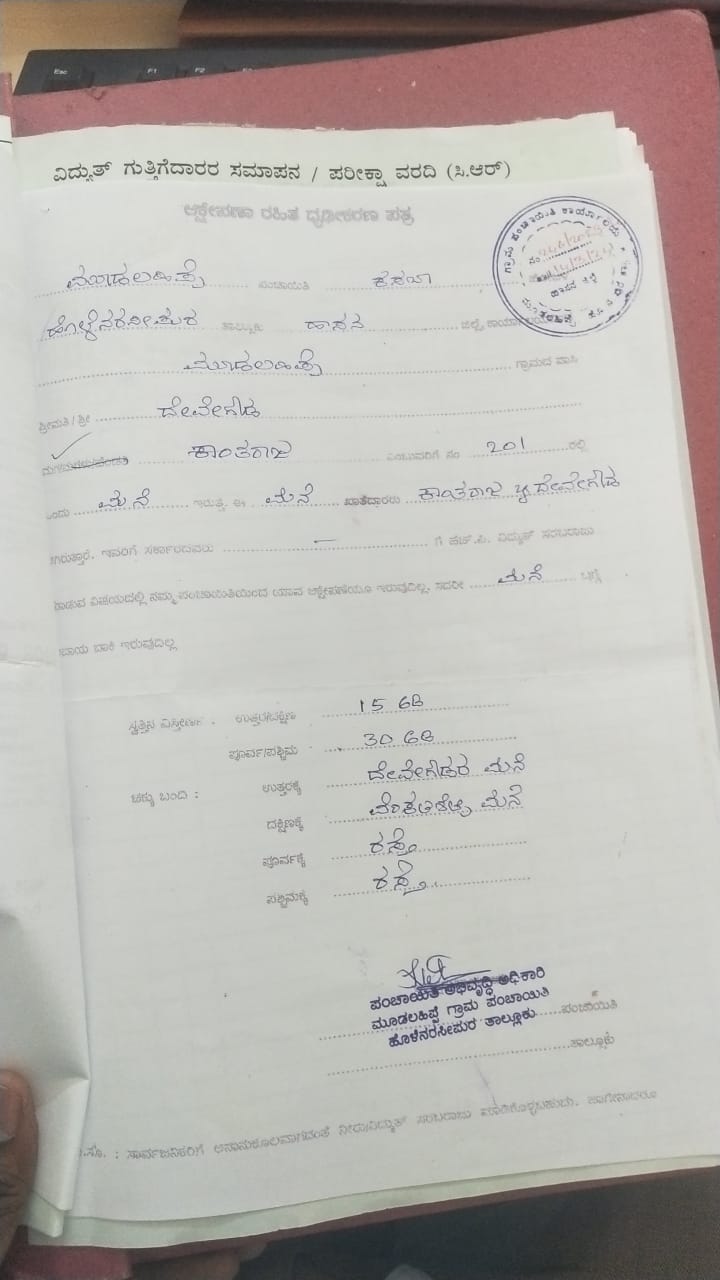 Esc F1 F2
ವಿದ್ಯುತ್ ಗುತ್ತಿಗೆದಾರರ ಸಮಾಪನ / ಪರೀಕ್ಷಾ ವರದಿ (ಸಿ.ಆರ್)
ಆಕ್ಷೇಪಣಾ ರಹಿತ ದೃಢೀಕರಣ ಪತ್ರ
ಗ್ರಾಮ ಪಂಚಾಯಿತಿ ಕಾರ್ಯಾಲಯ
ಮೂಡಲಹಿಪ್ಪೆ ಪಂಚಾಯಿತಿ ಕಸಬಾ
ಹೊಳೆನರಸೀಪುರ ತಾಲ್ಲೂಕು ಹಾಸನ ಜಿಲ್ಲೆ
ಮೂಡಲಹಿಪ್ಪೆ ಗ್ರಾಮದ ವಾಸಿ
ಶ್ರೀಮತಿ/ಶ್ರೀ ದೇವೇಗೌಡ
ಕಾಂತರಾಜ ಎಂಬುವರಿಗೆ ನಂ 201 ರಲ್ಲಿ
ಒಂದು ಮನೆ ಇರುತ್ತೆ ಈ ಮನೆ ಖಾತೆದಾರರು ಕಾಂತರಾಜ ದೇವೇಗೌಡ
ಆಗಿರುತ್ತಾರೆ. ಇವರಿಗೆ ಸರ್ಕಾರಿದವರು — ಗೆ ಹೆಚ್.ಪಿ. ವಿದ್ಯುತ್ ಸರಬರಾಜು
ಮಾಡುವ ವಿಷಯದಲ್ಲಿ ನಮ್ಮ ಪಂಚಾಯಿತಿಯಿಂದ ಯಾವ ಆಕ್ಷೇಪಣೆಯೂ ಇರುವುದಿಲ್ಲ. ಸದರೀ ಮನೆ
ಬಾಕಿ ಇರುವುದಿಲ್ಲ
ಸ್ವತ್ತಿನ ವಿಸ್ತೀರ್ಣ : ಉತ್ತರ/ದಕ್ಷಿಣ 15
ಪೂರ್ವ/ಪಶ್ಚಿಮ 30
ಚಕ್ಕು ಬಂದಿ : ಉತ್ತರಕ್ಕೆ ದೇವೇಗೌಡರ ಮನೆ
ದಕ್ಷಿಣಕ್ಕೆ ಮನೆ
ಪೂರ್ವಕ್ಕೆ ರಸ್ತೆ
ಪಶ್ಚಿಮಕ್ಕೆ ರಸ್ತೆ
ಪಂಚಾಯಿತಿ ಅಭಿವೃದ್ಧಿ ಅಧಿಕಾರಿ
ಮೂಡಲಹಿಪ್ಪೆ ಗ್ರಾಮ ಪಂಚಾಯಿತಿ ಪಂಚಾಯಿತಿ
ಹೊಳೆನರಸೀಪುರ ತಾಲ್ಲೂಕು
ತಾಲ್ಲೂಕು
ಸಾರ್ವಜನಿಕರಿಗೆ ಅನಾನುಕೂಲವಾಗದಂತೆ ನೀರು/ವಿದ್ಯುತ್ ಸರಬರಾಜು